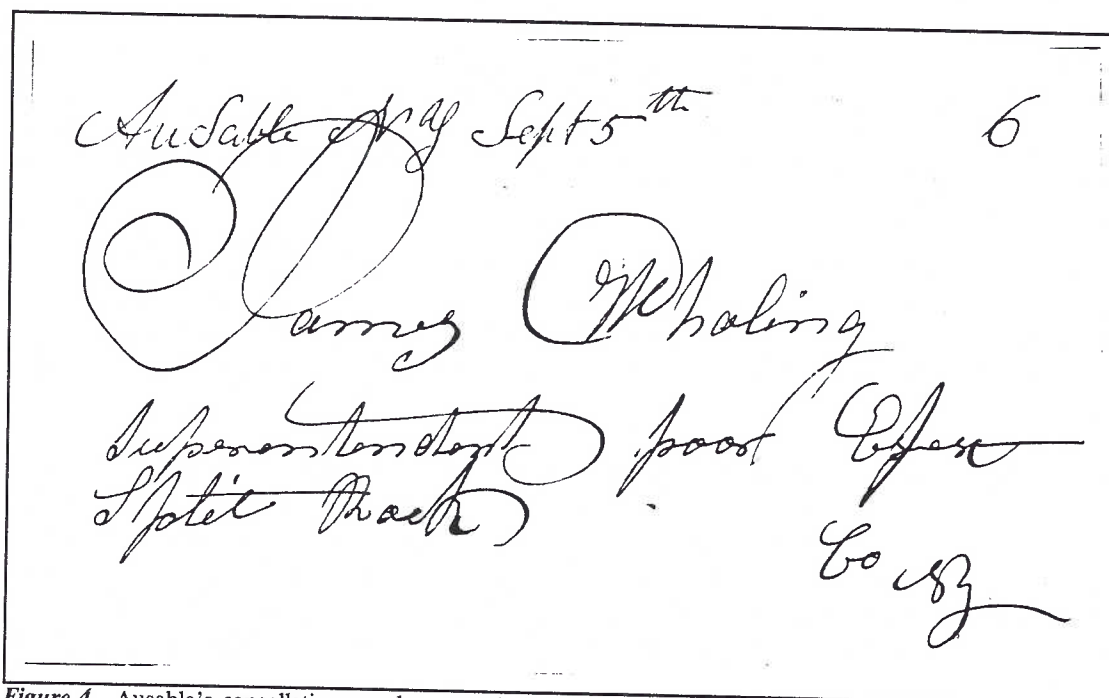 AuSable NY Sept 5th 6
James Whaling
Superentendent poor Essex
Split Rock
Co NY
Figure 4. Ausable's